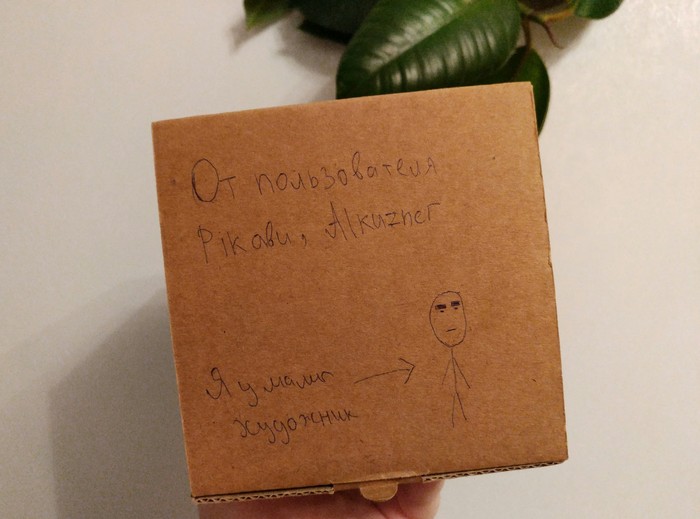 От пользователя
Pікави, Alkuzner
Я у мамы
художник